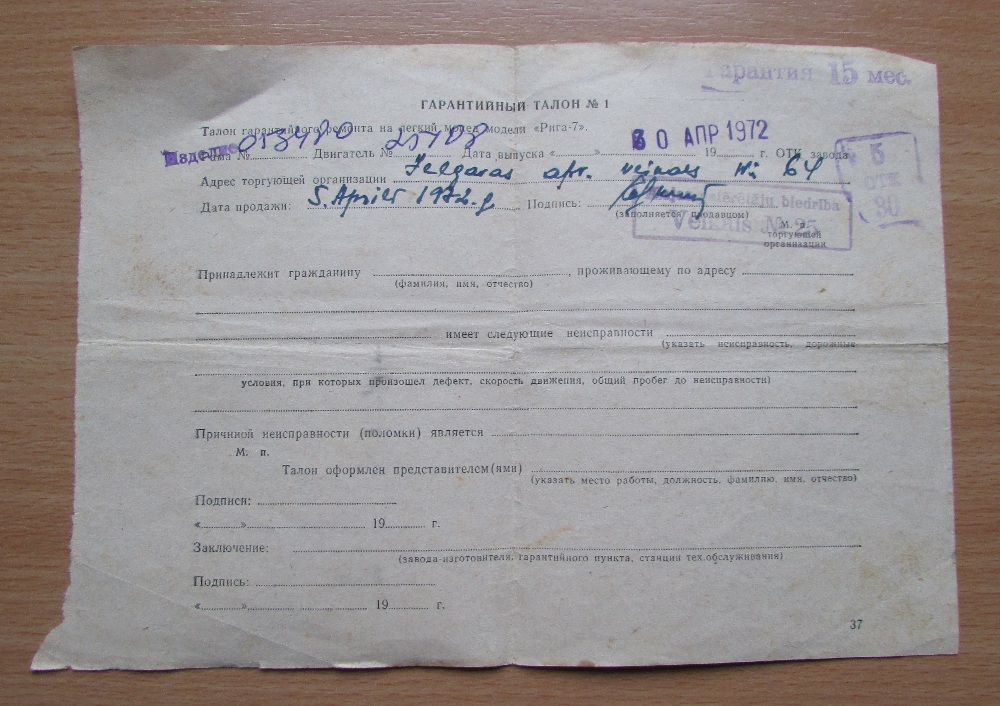 Гарантия 15 мес.
ГАРАНТИЙНЫЙ ТАЛОН № 1
Талон гарантийного ремонта на легкий мопед модели «Рига-7».
Изделие
Рама № 053480 Двигатель № Дата выпуска « » 30 АПР 1972 19 г. ОТК завода
5
ОТК
Адрес торгующей организации Jelgavas apr. veikals № 64
Дата продажи: 5. Aprīlī 1972. g. Подпись:
(заполняется продавцом)
biedrība
Veikals № 25
М. п.
торгующей
организации
Принадлежит гражданину , проживающему по адресу
(фамилия, имя, отчество)
имеет следующие неисправности
(указать неисправность, дорожные
условия, при которых произошел дефект, скорость движения, общий пробег до неисправности)
Причиной неисправности (поломки) является
М. п.
Талон оформлен представителем(ями)
(указать место работы, должность, фамилию, имя, отчество)
Подписи:
« » 19 г.
Заключение:
(завода-изготовителя, гарантийного пункта, станции тех.обслуживания)
Подпись:
« » 19 г.
37